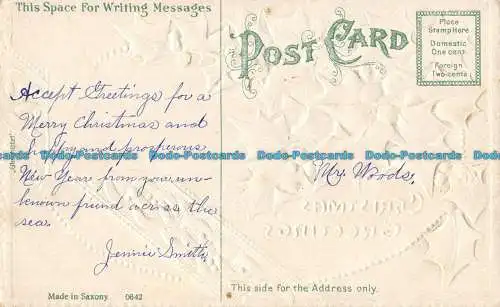 This Space For Writing Messages
POST CARD
Place
Stamp Here
Domestic
One cent
Foreign
Two cents
Accept Greetings for a
Merry Christmas and
happy and prosperous
New Year from your un-
known friend across the
sea.
Jennie Smith,
Mr. Woods,
This side for the Address only.
Made in Saxony 0642
Dodo-Postcards Dodo-Postcards Dodo-Postcards Dodo-Postcards
CHRISTMAS
GREETINGS